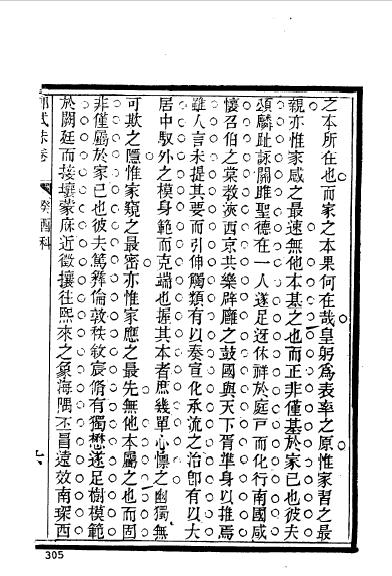 之本所在也而家之本果何在哉皇躬為表率之原惟家習之最
親亦惟家感之最速無他本基之也而正非僅基於家已也彼夫
頌麟趾詠關雎聖德在一人遂足迓休祥於庭戸而化行南國咸
懷召伯之棠教浹西京共樂辟廱之鼓國與天下胥準身以推焉
雖人言未提其要而引伸觸類有以奏宣化承流之治卽有以大
居中馭外之模身範而克端也握其本者庶幾單心懍之幽獨無
可欺之隱惟家窺之最密亦惟家應之最先無他本屬之也而固
非僅屬於家已也彼夫篤彝倫敦秩敘宸脩有獨懋遂足樹模範
於闕廷而接壤蒙庥近徵攘往熙來之象海隅丕冒遠效南琛西
鄉試硃卷
癸酉科
305